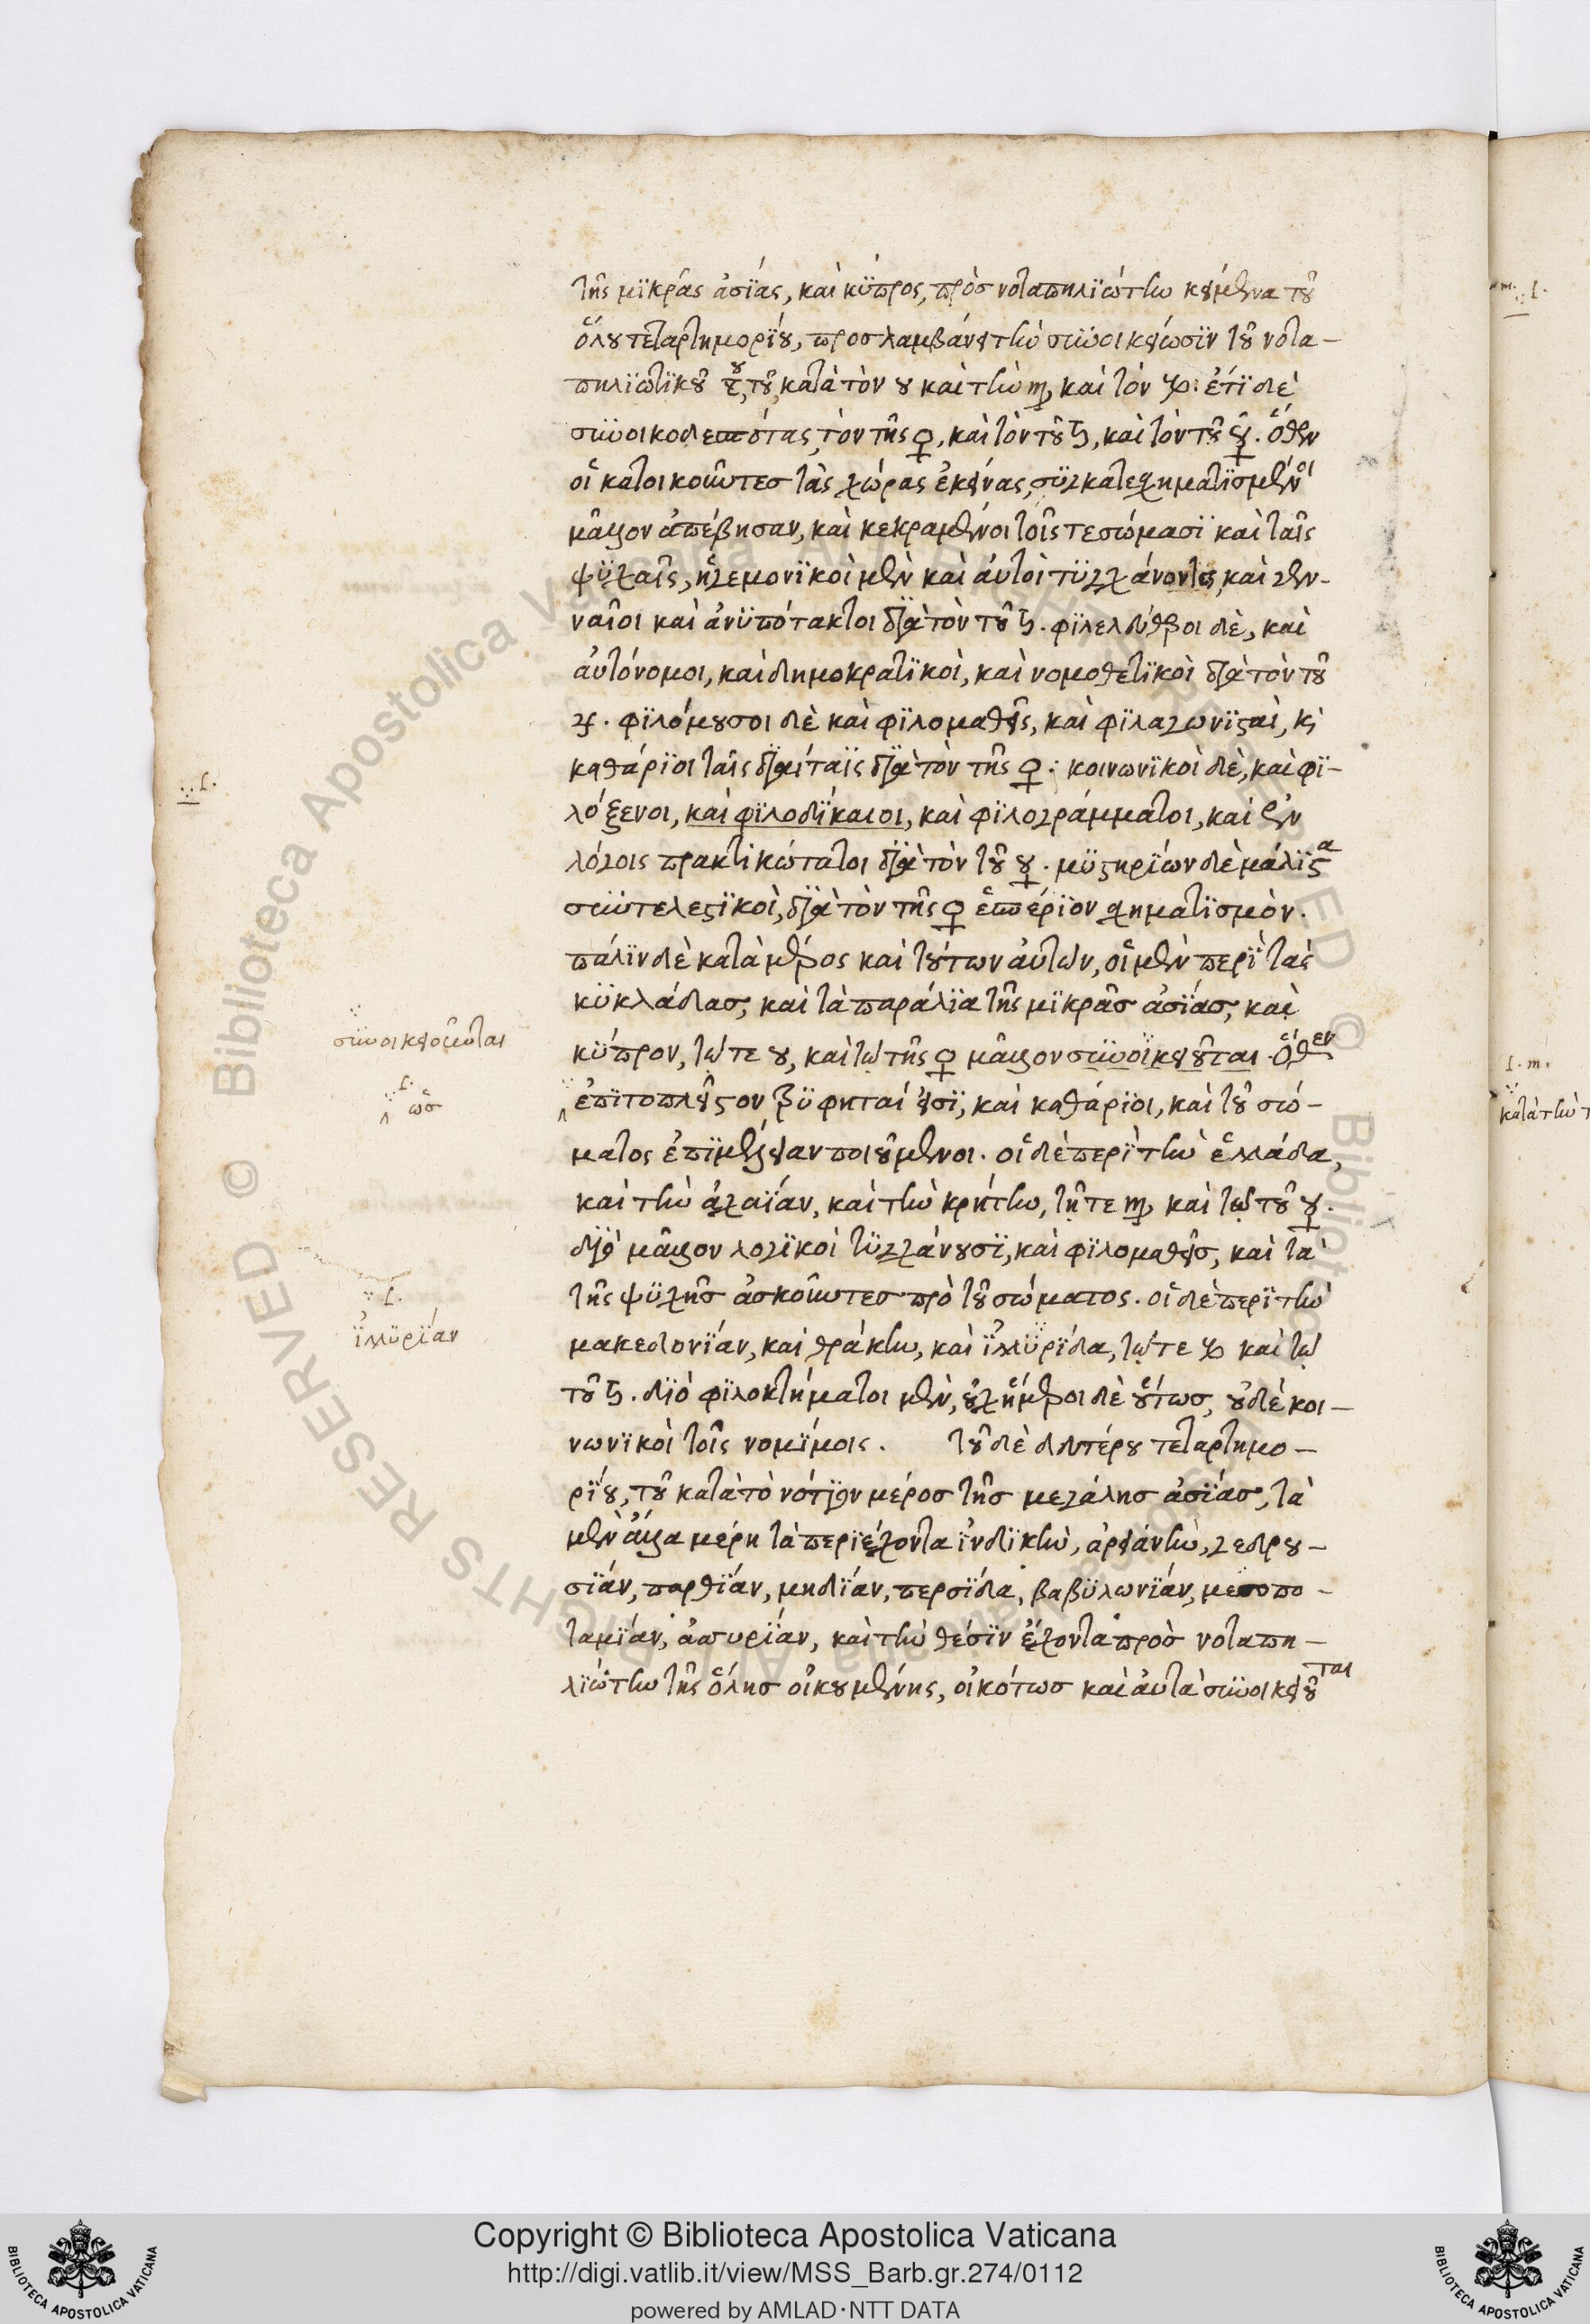 τῆς μϊκρᾶς ἀσΐας, καὶ κΰπρος, πρὸς νοταπηλϊώτην κείμενα τοῦ
ὅλου τεταρτημορΐου, προσλαμβάνει τὴν συνοικείωσϊν τοῦ νοτα–
πηλϊωτϊκοῦ τοῦ κατὰ τὸν ♉ καὶ τὴν ♍, καὶ τὸν ♑: ἔτϊ δὲ
συνοικοδεσπότας, τὸν τῆς ♀, καὶ τὸν τοῦ ♄, καὶ τὸν τοῦ ☿. ὅθεν
οἱ κατοικοῦντες τὰς χώρας ἐκείνας, συγκατεσχηματϊσμένοι
μᾶλλον ἀπέβησαν, καὶ κεκραμένοι τοῖς τε σώμασϊ καὶ ταῖς
ψϋχαῖς, ἡγεμονϊκοὶ μὲν καὶ αὐτοὶ τϋγχάνοντες, καὶ γεν–
ναῖοι καὶ ἀνϋπότακτοι δϊὰ τὸν τοῦ ♄. φϊλελεύθεροι δὲ, καὶ
αὐτόνομοι, καὶ δημοκρατϊκοὶ, καὶ νομοθετϊκοὶ δϊὰ τὸν τοῦ
♃. φϊλόμουσοι δὲ καὶ φϊλομαθεῖς, καὶ φϊλαγωνϊσταὶ, κὶ
καθάρϊοι ταῖς δϊαίταϊς δϊὰ τὸν τῆς ♀: κοινωνϊκοὶ δὲ, καὶ φϊ–
λόξενοι, καὶ φϊλοδΐκαιοι, καὶ φϊλογράμματοι, καὶ ἐν
λόγοις πρακτικώτατοι δϊὰ τὸν τοῦ ☿. μϋστηρΐων δὲ μάλϊστα
συντελεστϊκοὶ, δϊὰ τὸν τῆς ♀ ἑσπέρϊον σχηματϊσμὸν.
πάλϊν δὲ κατὰ μέρος καὶ τούτων αὐτῶν, οἱ μὲν περὶ τὰς
κϋκλάδας, καὶ τὰ παράλϊα τῆς μϊκρᾶς ἀσΐας, καὶ
κΰπρον, τῷ τε ♉, καὶ τῷ τῆς ♀ μᾶλλον συνοϊκειοῦται. ὅθεν
ἐπϊτοπλεῖστον τρϋφηταί εἰσϊ, καὶ καθάρϊοι, καὶ τοῦ σώ–
ματος ἐπϊμέλειαν ποιούμενοι. οἱ δὲ περὶ τὴν ἑλλάδα,
καὶ τὴν ἀχαΐαν, καὶ τὴν κρήτην, τῇ τε ♍ καὶ τῷ τοῦ ☿.
δϊὸ μᾶλλον λογϊκοὶ τϋγχάνουσϊ, καὶ φϊλομαθεῖς, καὶ τὰ
τῆς ψϋχῆς ἀσκοῦντες πρὸ τοῦ σώματος. οἱ δὲ περὶ τὴν
μακεδονΐαν, καὶ θράκην, καὶ ϊλλϋρΐδα, τῷ τε ♑ καὶ τῷ
τοῦ ♄. δϊὸ φϊλοκτήματοι μὲν, οὐχ ἥμεροι δὲ οὕτως, οὐδὲ κοι–
νωνϊκοὶ τοῖς νομΐμοις. τοῦ δὲ δευτέρου τεταρτημο–
ρΐου, τοῦ κατὰ τὸ νότϊον μέρος τῆς μεγάλης ἀσΐας, τὰ
μὲν ἄλλα μέρη τὰ περϊέχοντα ϊνδϊκὴν, ἀρειάνὴν, γεδρου–
σΐαν, παρθΐαν, μηδΐαν, περσΐδα, βαβϋλωνΐαν, μεσοπο–
ταμΐαν, ἀσσυρΐαν, καὶ τὴν θέσϊν ἔχοντα πρὸς νοταπη–
λϊώτην τῆς ὅλης οἰκουμένης, οἰκότως καὶ αὐτὰ συνοικειοῦται
∵ f.
συνοικειοῦνται
f.
∵ ὡς
∵ f.
ϊλλϋρΐαν
m. ∵ f.
f. m.
κατὰ τὴν τ
Copyright © Biblioteca Apostolica Vaticana
http://digi.vatlib.it/view/MSS_Barb.gr.274/0112
powered by AMLAD·NTT DATA
BIBLIOTECA APOSTOLICA VATICANA
BIBLIOTECA APOSTOLICA VATICANA